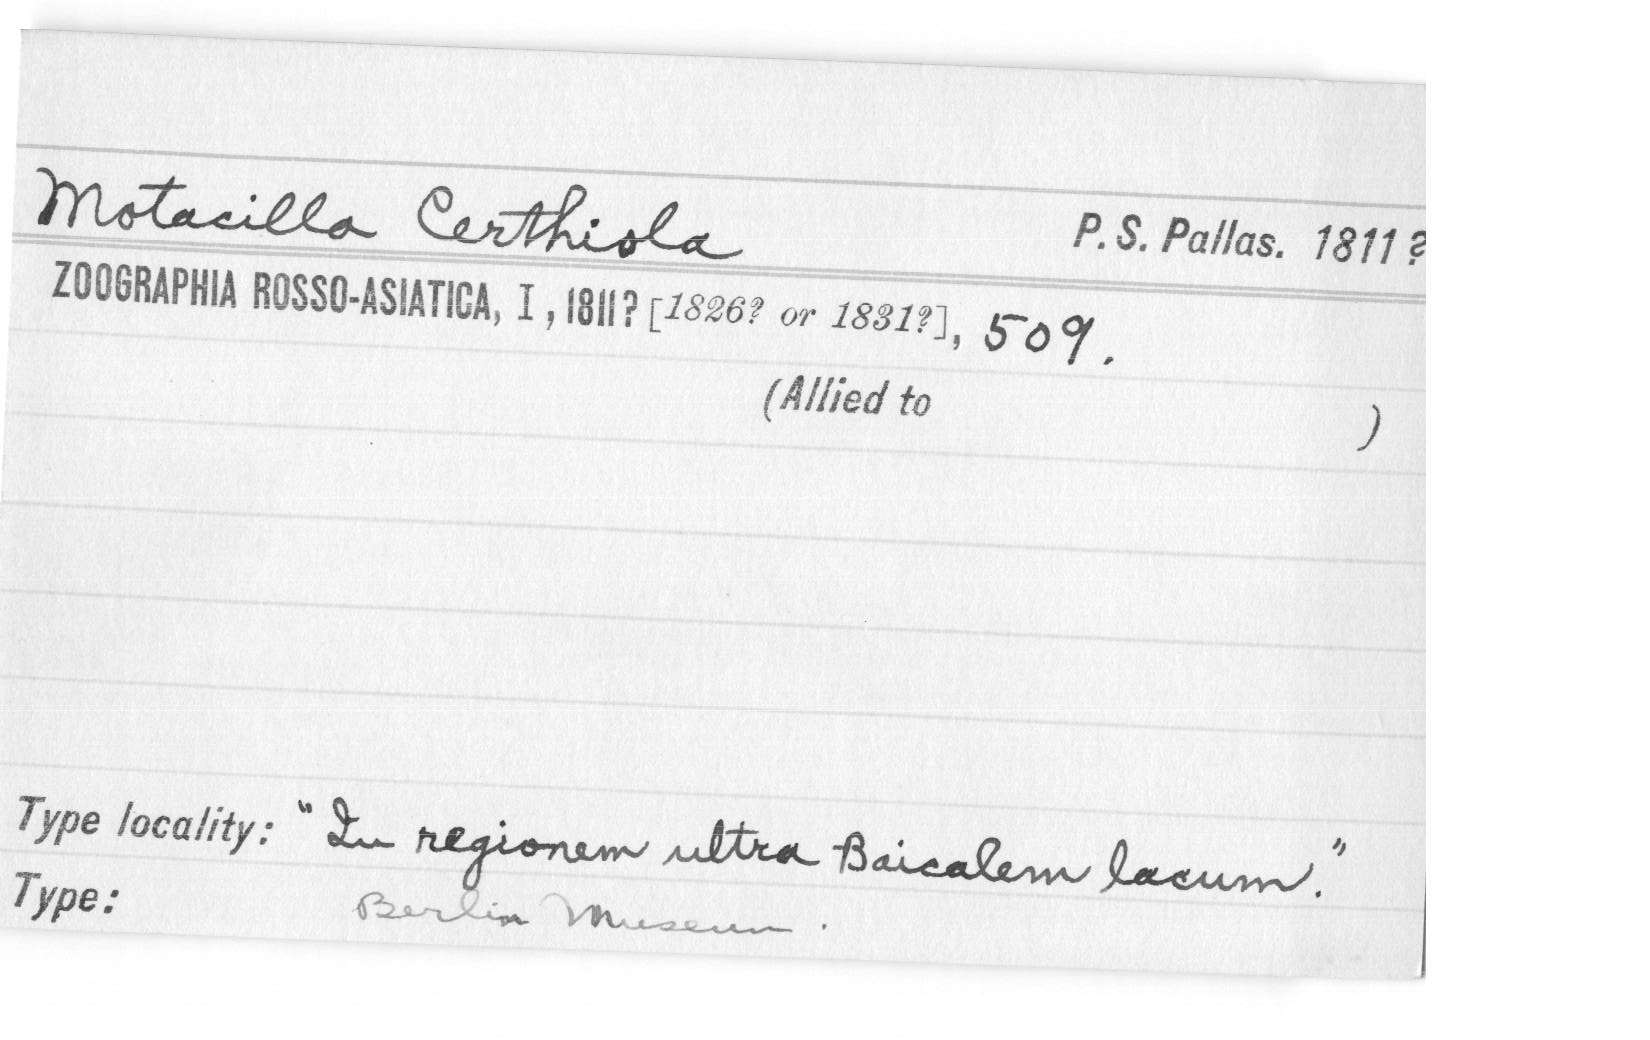 Motacilla Certhiola P. S. Pallas. 1811?
ZOOGRAPHIA ROSSO-ASIATICA, I, 1811? [1826? or 1831?], 509.
(Allied to )
Type locality: "In regionem ultra Baicalem lacum."
Type: Berlin Museum.